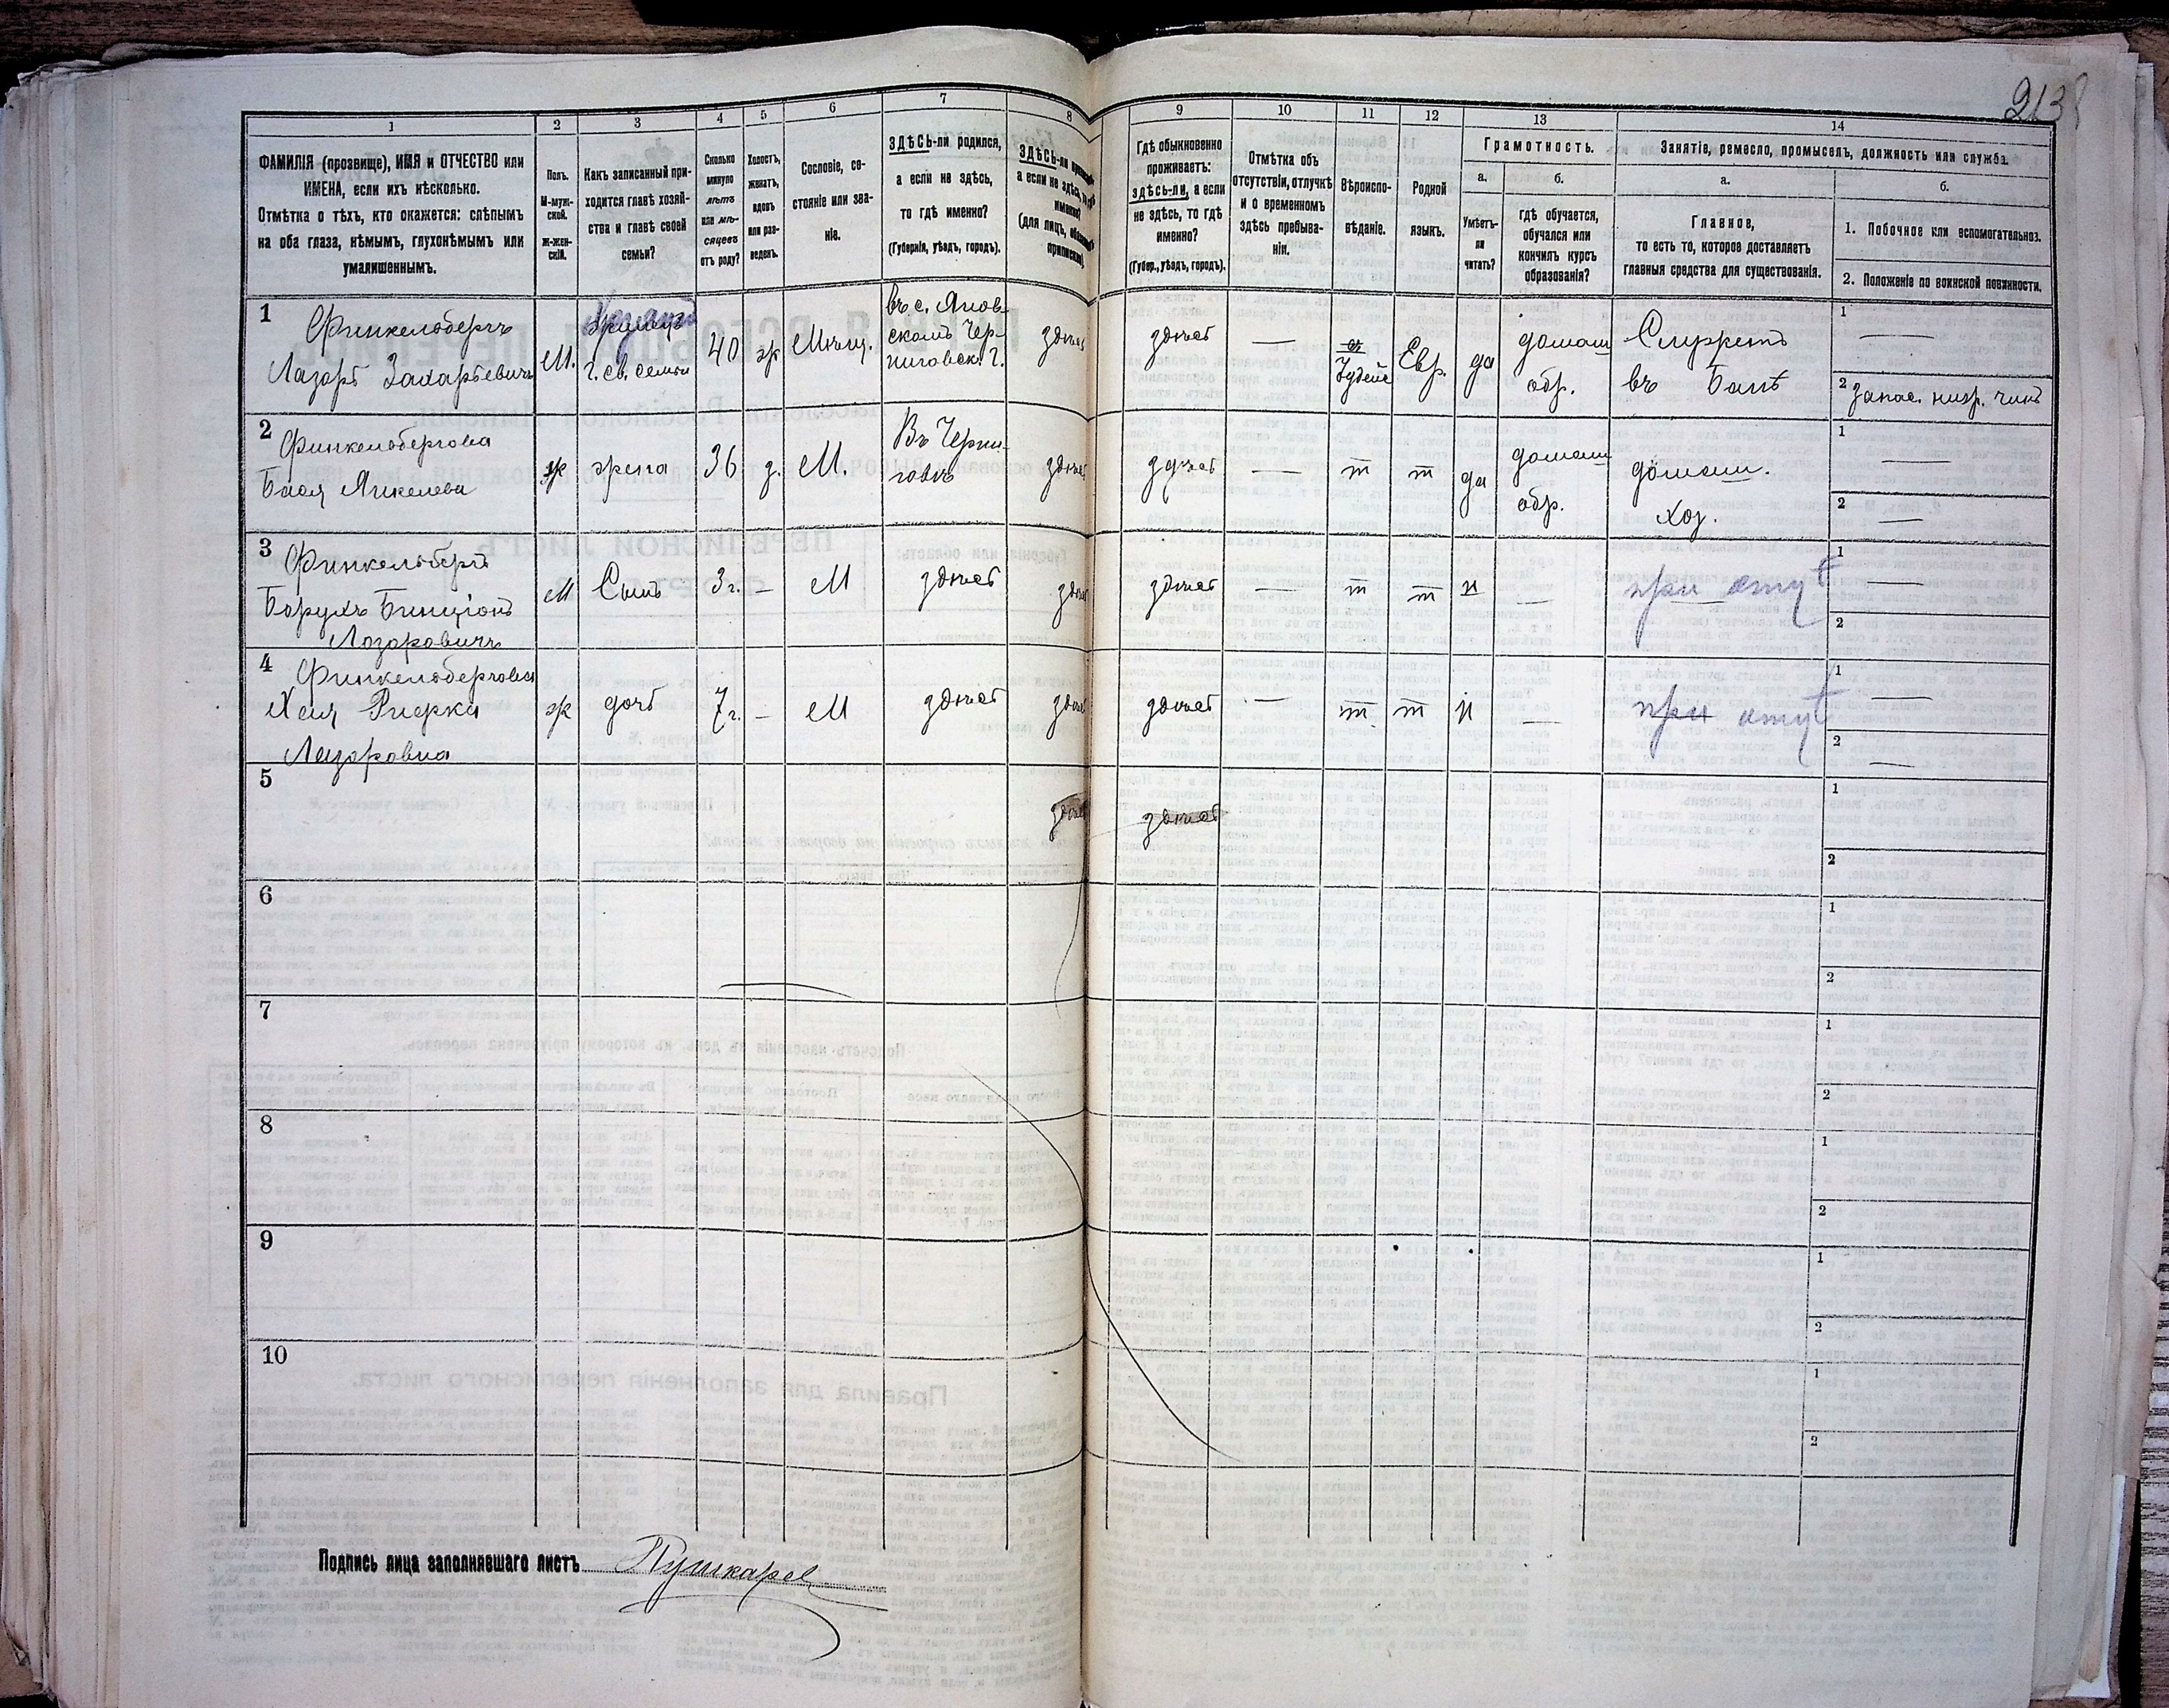 213
1
2
3
4
5
6
7
8
9
10
11
12
13
14
ФАМИЛІЯ (прозвище), ИМЯ и ОТЧЕСТВО или
ИМЕНА, если ихъ нѣсколько.
Отмѣтка о тѣхъ, кто окажется: слѣпымъ
на оба глаза, нѣмымъ, глухонѣмымъ или
умалишеннымъ.
Полъ.
М-муж-
ской.
Ж-жен-
скій.
Какъ записанный при-
ходится главѣ хозяй-
ства и главѣ своей
семьи?
Сколько
минуло
лѣтъ
или мѣ-
сяцевъ
отъ роду?
Холостъ,
женатъ,
вдовъ
или раз-
веденъ.
Сословіе, со-
стояніе или зва-
ніе.
ЗДѢСЬ-ли родился,
а если не здѣсь,
то гдѣ именно?
(Губернія, уѣздъ, городъ).
ЗДѢСЬ-ли
а если не здѣсь,
(для лицъ,
Гдѣ обыкновенно
проживаетъ:
здѣсь-ли, а если
не здѣсь, то гдѣ
именно?
(Губер., уѣздъ, городъ).
Отмѣтка объ
отсутствіи, отлучкѣ
и о временномъ
здѣсь пребыва-
ніи.
Вѣроиспо-
вѣданіе.
Родной
языкъ.
Грамотность.
а.
б.
Умѣетъ-
ли
читать?
гдѣ обучается,
обучался или
кончилъ курсъ
образованія?
Занятіе, ремесло, промыселъ, должность или служба.
а.
б.
Главное,
то есть то, которое доставляетъ
главныя средства для существованія.
1. Побочное или вспомогательное.
2. Положеніе по воинской повинности.
1 Финкельбергъ
Лазарь Захарьевичъ
М.
г. св. семьи
40
ж
Мѣщ.
въ с. Янов-
скомъ Чер-
ниговск. г.
здѣсь
здѣсь
—
Іудейс
Евр.
да
домаш
обр.
Служитъ
въ Банѣ
1 —
2 Запас. ниж. чинъ
2 Финкельбергова
Бася Янкелева
ж
жена
36
з.
М.
Въ Черни-
говѣ
здѣсь
здѣсь
—
т
т
да
домаш
обр.
домаш.
хоз.
1 —
2 —
3 Финкельбергъ
Борухъ Бенціонъ
Лазаровичъ
М
Сынъ
3 г.
—
М
здѣсь
здѣсь
здѣсь
—
т
т
н
—
при отцѣ
1 —
2
4 Финкельбергова
Хая Рифка
Лазаровна
ж
дочь
7 г.
—
М
здѣсь
здѣсь
здѣсь
—
т
т
н
—
при отцѣ
1 —
2 —
5
здѣсь
здѣсь
1
2
6
1
2
7
1
2
8
1
2
9
1
2
10
1
2
Подпись лица заполнявшаго листъ Пушкарев